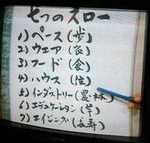 七つのスロー
1) ペース(歩)
2) ウェア(衣)
3) フード(食)
4) ハウス(住)
5) インダストリー(農・林)
6) エデュケーション(学)
7) エイジング(長寿)